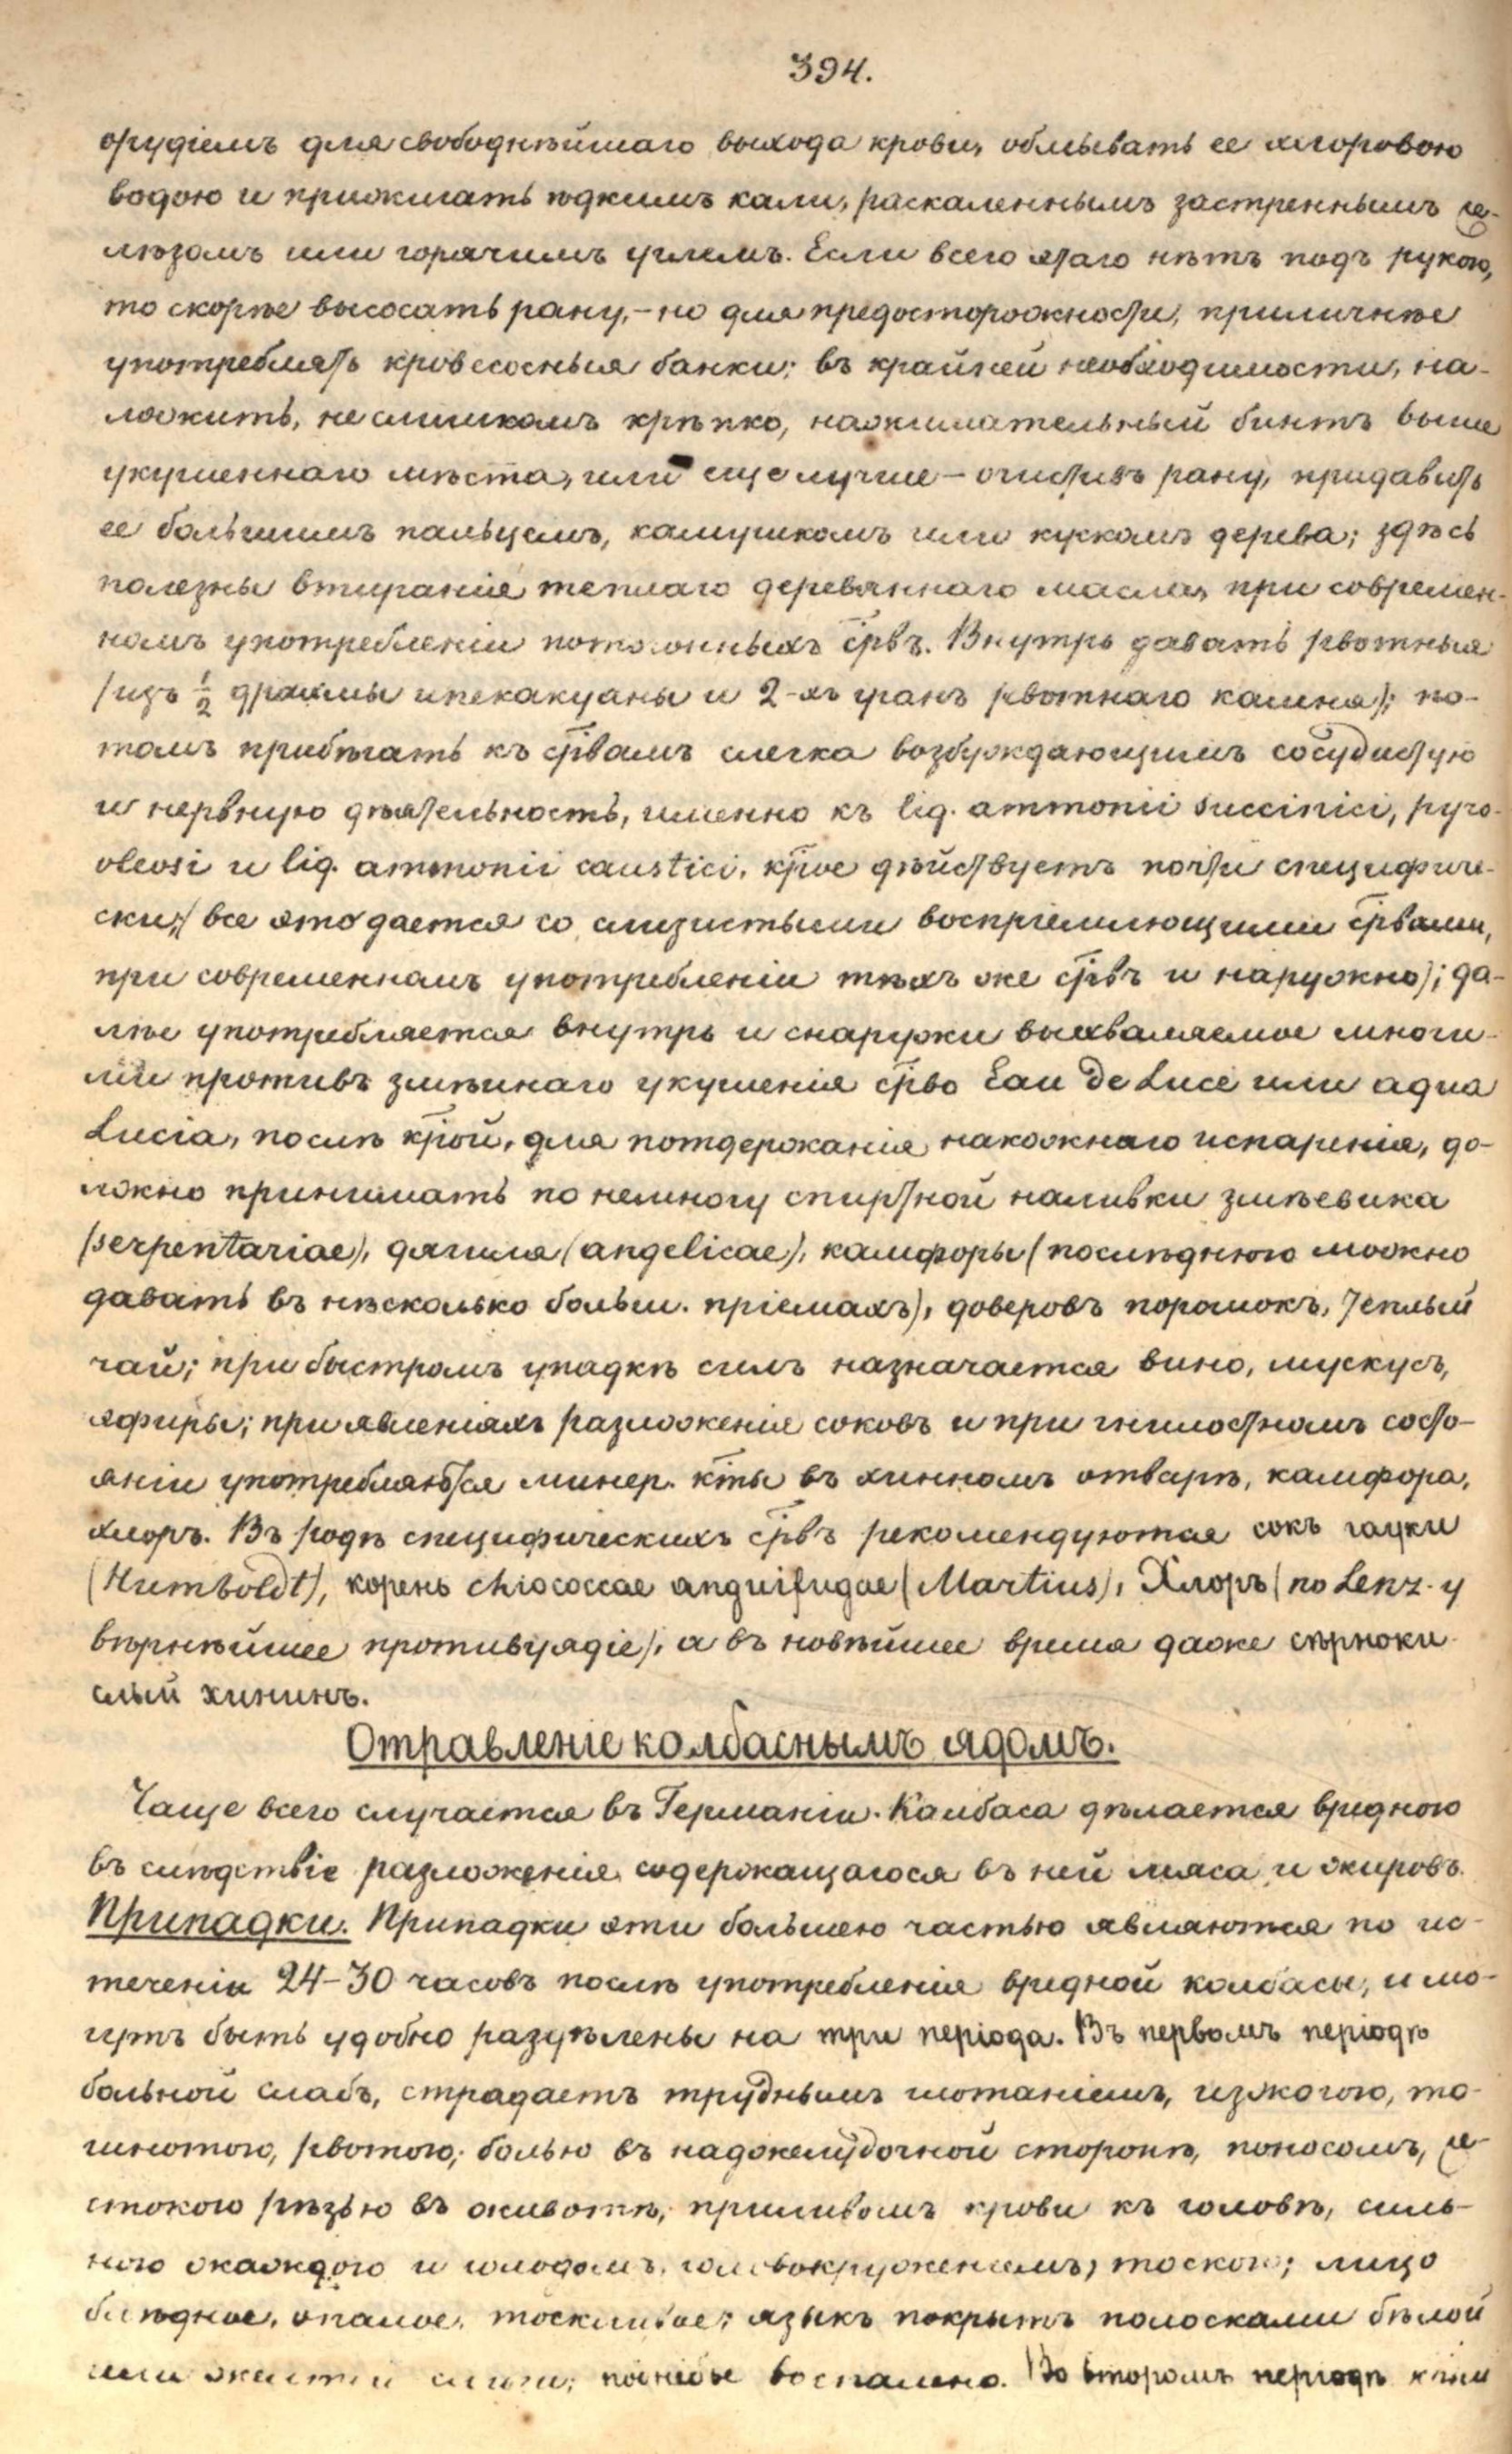 394.
орудіемъ для свободнѣйшаго выхода крови, обмывать ее хлоровою
водою и прижигать ѣдкимъ кали, раскаленнымъ застреннымъ же-
лѣзомъ или горячимъ углемъ. Если всего этаго нѣтъ подъ рукою,
то скорѣе высосать рану, – но для предосторожности, приличнѣе
употреблять кровесосныя банки; въ крайней необходимости, на-
ложить, не слишкомъ крѣпко, нажимательный бинтъ выше
укушеннаго мѣста, или еще лучше – очистивъ рану, придавить
ее большимъ пальцемъ, камушкомъ или кускомъ дерева; здѣсь
полезны втиранія теплаго деревяннаго масла, при современ-
номъ употребленіи потогонныхъ ср̄въ. Внутрь давать рвотныя
(изъ ½ драхмы ипекакуаны и 2-хъ гранъ рвотнаго камня); по-
томъ прибѣгать къ ср̄вамъ слегка возбуждающимъ сосудистую
и нервную дѣятельность, именно къ liq. ammonii succinici, pyro-
oleosi и liq. ammonii caustici, кр̄ое дѣйствуетъ почти специфиче-
ски; (все это дается со слизистыми воспріемлющими ср̄вами,
при современномъ употребленіи тѣхъ же ср̄въ и наружно); да-
лѣе употребляется внутрь и снаружи выхваляемое многи-
ми противъ змѣинаго укушенія ср̄во Eau de Luce или aqua
Lucia, послѣ кр̄ой, для потдержанія накожнаго испаренія, до-
лжно принимать по немногу спиртной наливки змѣевика
(serpentariae), дягиля (angelicae), камфоры (послѣднюю можно
давать въ нѣсколько больш. пріемахъ), доверовъ порошокъ, теплый
чай; при быстромъ упадкѣ силъ назначается вино, мускусъ,
эфиры; при явленіяхъ разложенія соковъ и при гнилостномъ состо-
яніи употребляются минер. к̄ты въ хинномъ отварѣ, камфора,
хлоръ. Въ родѣ специфическихъ ср̄въ рекомендуются сокъ гауки
(Humboldt), корень chiococcae anguifugae (Martius), Хлоръ (по Lenz-у
вѣрнѣйшее противуядіе), а въ новѣйшее время даже сѣрноки-
слый хининъ.
Отравленіе колбаснымъ ядомъ.
Чаще всего случается въ Германіи. Калбаса дѣлается вредною
въ слѣдствіе разложенія содержащагося въ ней мяса и жировъ.
Припадки. Припадки эти большею частью являются по ис-
теченіи 24–30 часовъ послѣ употребленія вредной колбасы, и мо-
гутъ быть удобно раздѣлены на три періода. Въ первомъ періодѣ
больной слабъ, страдаетъ труднымъ глотаніемъ, изжогою, то-
шнотою, рвотою; болью въ надожелудочной сторонѣ, поносомъ, же-
стокою рѣзью въ животѣ, приливомъ крови къ головѣ, силь-
ною жаждою и голодомъ, головокруженіемъ, тоскою; лицо
блѣдное, опалое, тоскливое; языкъ покрытъ полосками бѣлой
или желтой слизи; поднебье воспалено. Во второмъ періодѣ